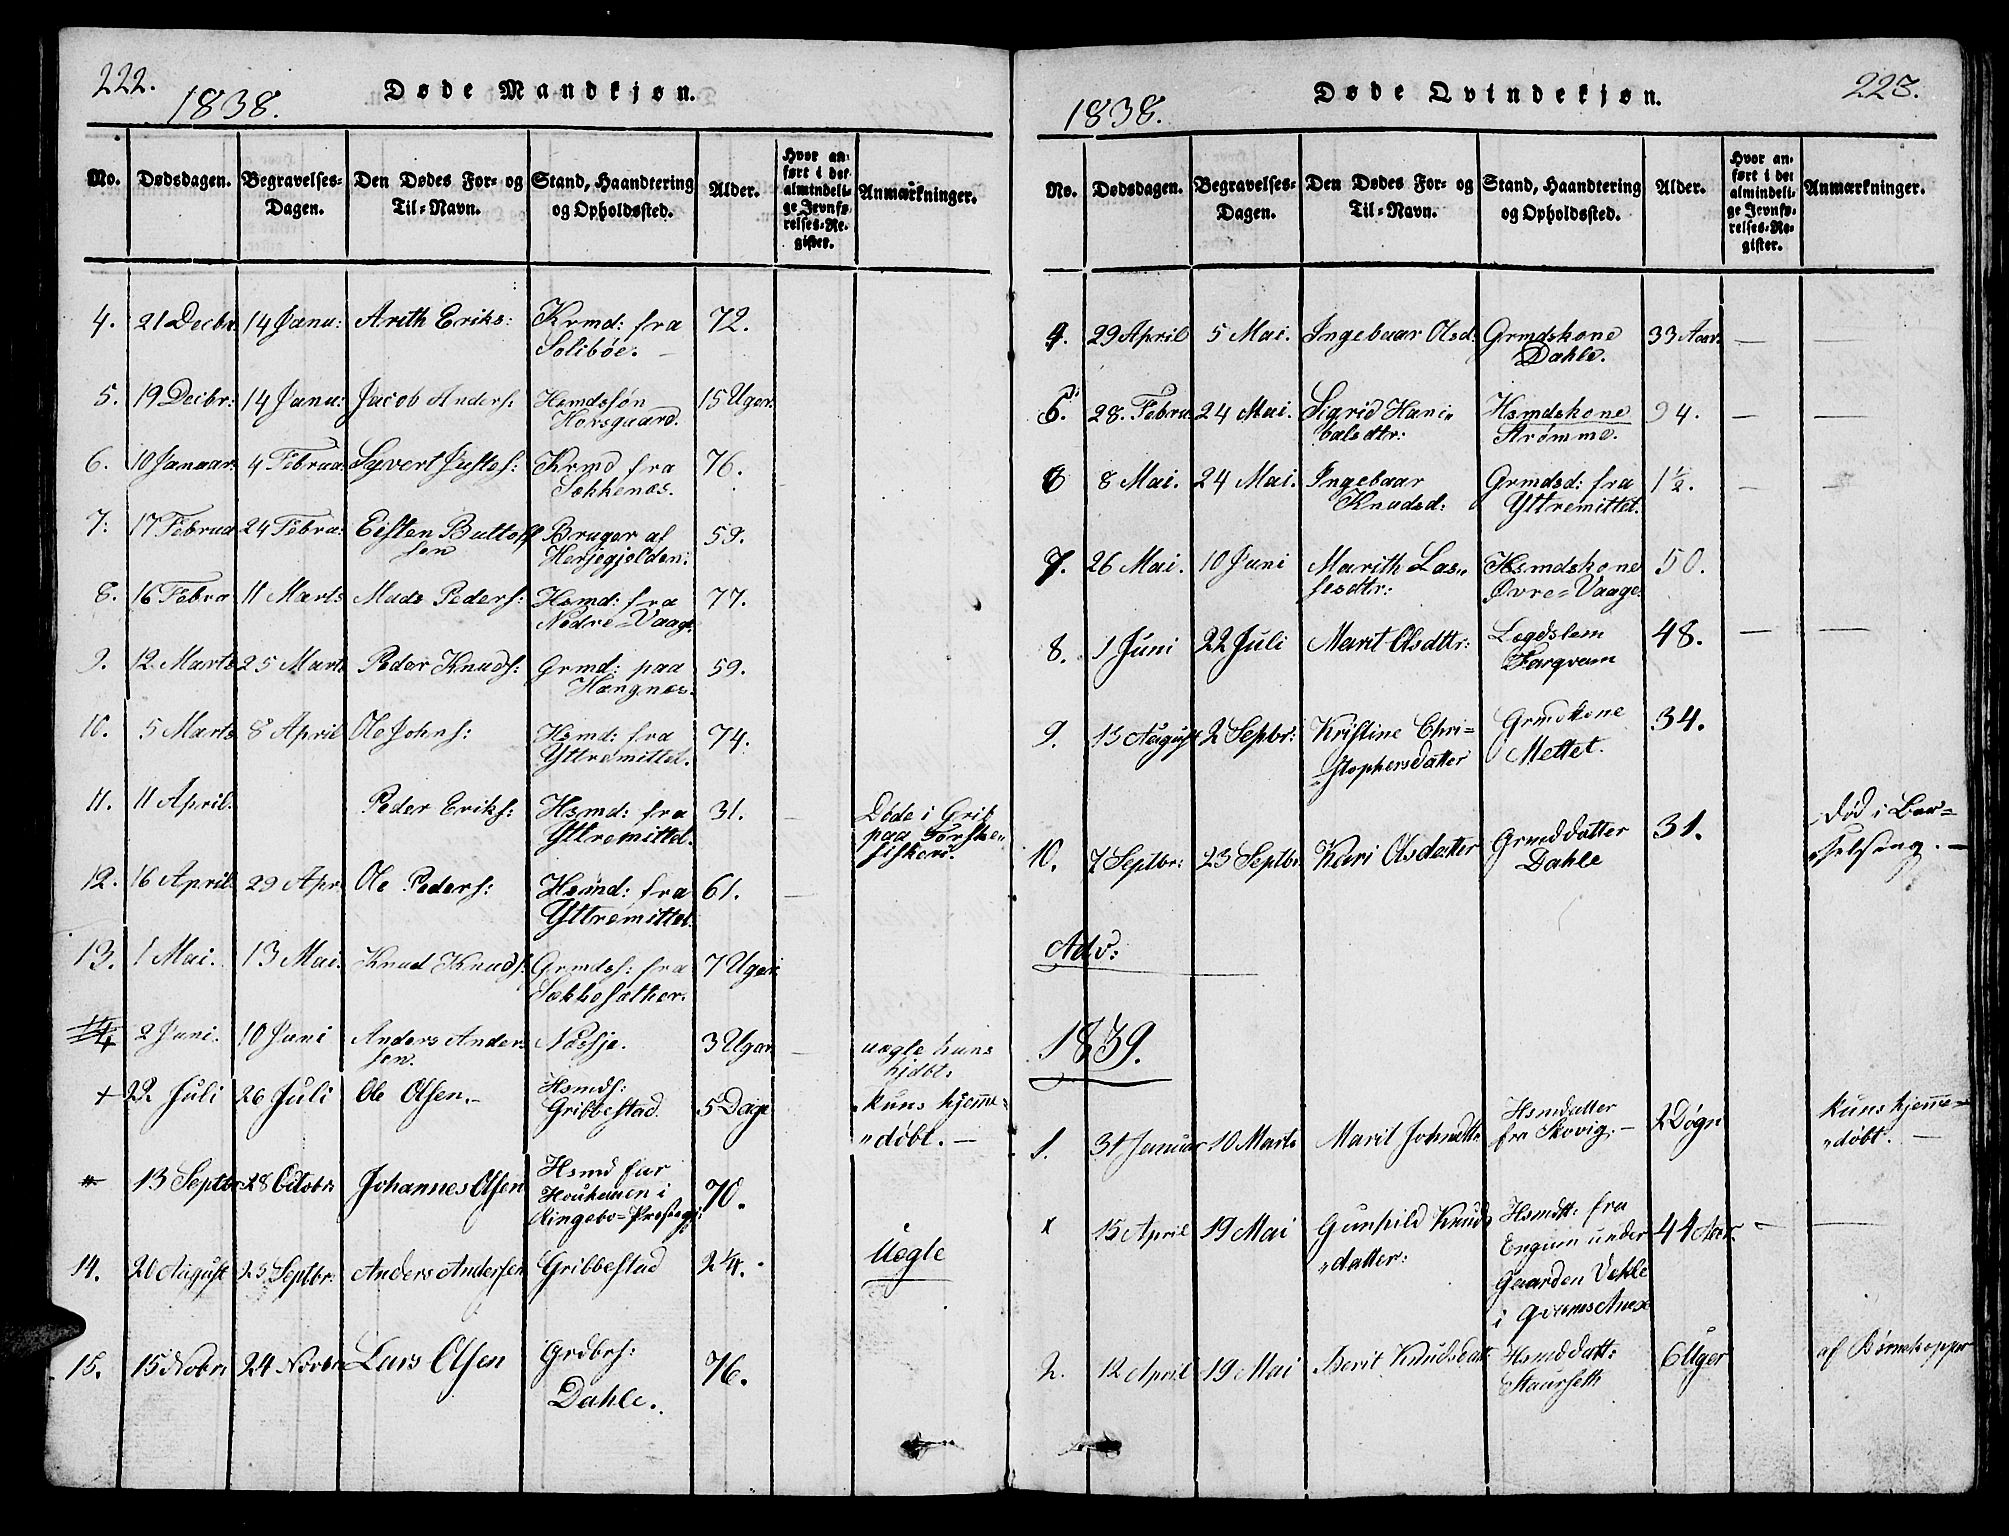 222.
1838.
Døde Mandkjøn.
No. Dødsdagen. Begravelses-Dagen. Den Dødes For- og Til-Navn. Stand, Haandtering og Opholdssted. Alder. Hvor anført i det almindelige Jevnførelses-Register. Anmærkninger.
4. 21 Decbr. 14 Janu: Arith Eriks: Krmd: fra 72.
Solibøe.
5. 19 Decbr: 14 Janu: Jacob Anders: Hsmdssøn 15 Uger.
Horsgaard.
6. 10 Januar. 4 Februa: Syvert Justes: Krmd fra 76.
Sækkenæs.
7: 17 Februa 24 Febru: Eisten Buttolf Bruger af 59.
sen Herjegjelden:
8. 16 Febru 11 Marts Mads Peders: Hsmd: fra 77.
Nedre-Vaage.
9. 12 Marts 25 Mart. Peder Knuds: Grmd: paa 59.
Hængnæs.
10. 5 Marts 8 April Ole Johns: Hsmd: fra 74.
Yttremittet.
11. 11 April. Peder Eriks: Hsmd: fra 31. Døde i Grib
Yttremittet. paa Torske-
fiskerie.
12. 16 April. 29 Apr. Ole Peders: Hsmd: fra 61.
Yttremittet.
13. 1 Mai. 13 Mai. Knud Knuds: Grmds: fra 7 Uger
Sækkesæther.
14 2 Juni. 10 Juni Anders Anders Næsje. 3 Uger uægte kuns
sen. hjdbt:
+ 22 Juli 26 Juli Ole Olsen. Hsmds: 5 Dage kuns hjemme-
Gribbestad. døbt.
13 Septbr 28 Octobr Johannes Olsen Hsmd fur 70.
Ringebo-Præstegj:
14. 26 August 25 Septbr: Anders Andersen Gribbestad 2 1/4. Uægte
15. 15 Novbr 24 Novbr Lars Olsen Grdbrs: 76.
Dahle.
223.
1838.
Døde Qvindekjøn.
No. Dødsdagen. Begravelses-Dagen. Den Dødes For- og Til-Navn. Stand, Haandtering og Opholdssted. Alder. Hvor anført i det almindelige Jevnførelses-Register. Anmærkninger.
4. 29 April 5 Mai. Ingebaar Olsd: Grmdskone 33 Aar.
Dahle.
5. 28. Febru 24 Mai. Sigrid Hani- Hsmdskone 94.
balsdtr: Strømme.
6 8 Mai. 24 Mai. Ingebaar Grmdsd: fra 1 1/2.
Knudsd: Yttremittet.
7. 26 Mai. 10 Juni Marith Las- Hsmdskone 50.
sesdtr: Øvre-Vaage.
8. 1 Juni 22 Juli Marit Olsdtr: Lægdslem 48.
Torgvem
9. 13 August 2 Septbr: Kristine Chri- Grmdkone 34.
stophersdatter Mettet.
10. 7 Septbr: 23 Septbr Kari Olsdatter Grmddatter 31. død i Bar-
Dahle selseng.
Adv:
1839.
1. 31 Januar 10 Marts Marit Johndtt. Hsmdatter 2 Døgn kuns hjemme-
fra Skovig. døbt.
x 15 April 19 Mai Gunhild Knuds Hsmdtt: fra 44 Aar.
datter: Engum under
Gaarden Vehle
i Annex
2. 12 April 19 Mai Berit Knudsdatt Hsmddatt: 6 Uger af Børnekopper
Staurseth